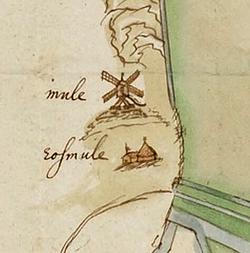 mule
rosmule